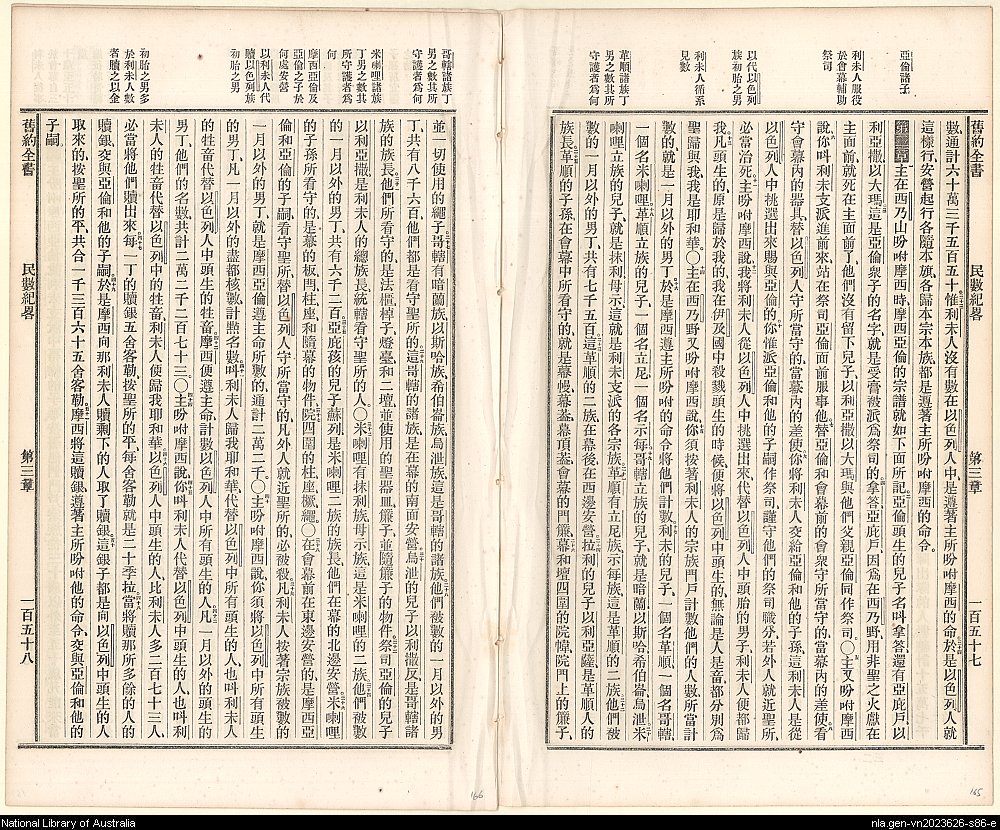 亞倫諸子
利未人服役
於會幕輔助
祭司
以代以色列
族初胎之男
利未人循系
見數
革順諸族丁
男之數其所
守護者爲何
舊約全書 民數紀畧 第三章 一百五十七
數、通計六十萬三千五百五十、惟利未人沒有數在以色列人中、是遵著主所吩咐摩西的命、於是以色列人就
這樣行、安營起行、各隨本旗、各歸本宗本族、都是遵著主所吩咐摩西的命令。
第三章 主在西乃山吩咐摩西時、摩西亞倫的宗譜就如下面所記、亞倫頭生的兒子名叫拿答、還有亞庇戶、以
利亞撒、以大瑪、這是亞倫衆子的名字、就是受膏被派爲祭司的、拿答亞庇戶、因爲在西乃野、用非聖之火獻在
主面前、就死在主面前了、他們沒有留下兒子、以利亞撒以大瑪與他們父親亞倫同作祭司。〇主又吩咐摩西
說、你叫利未支派進前來、站在祭司亞倫面前、服事他、替亞倫和會幕前的會衆、守所當守的、當幕內的差使、看
守會幕內的器具、替以色列人守所當守的、當幕內的差使、你將利未人交給亞倫和他的子孫、這利未人是從
以色列人中挑選出來賜與亞倫的、你惟派亞倫和他的子嗣作祭司、謹守他們的祭司職分、若外人就近聖所、
必當治死、主吩咐摩西說、我將利未人從以色列人中挑選出來、代替以色列人中頭胎的男子、利未人便都歸
我、凡頭生的原是歸於我的、我在伊及國中殺戮頭生的時候、便將以色列中頭生的、無論是人是畜、都分別爲
聖歸與我、我是耶和華。〇主在西乃野又吩咐摩西說、你須按著利未人的宗族門戶計數他們的人數、所當計
數的就是一月以外的男丁、於是摩西遵主所吩咐的命令將他們計數、利未的兒子、一個名革順、一個名哥轄、
一個名米喇哩、革順立族的兒子、一個名立尼、一個名示每、哥轄立族的兒子、就是暗蘭以斯哈希伯崙烏泄、米
喇哩立族的兒子、就是抹利母示、這就是利未支派的各宗族、革順有立尼族示每族、這是革順的二族、他們被
數的一月以外的男丁、共有七千五百、這革順的二族、在幕後在西邊安營、拉利的兒子以利亞薩、是革順人的
族長、革順的子孫在會幕中所看守的、就是幕幔、幕葢、幕頂葢、會幕的門簾、幕和壇四圍的院幃、院門上的簾子、
哥轄諸族丁
男之數其所
守護者爲何
米喇哩諸族
丁男之數其
所守護者爲
何
摩西亞倫及
亞倫之子於
何處安營
以利未人代
贖以色列族
初胎之男
初胎之男多
於利未人數
者贖之以金
並一切使用的繩子、哥轄有暗蘭族以斯哈族希伯崙族烏泄族、這是哥轄的諸族、他們被數的一月以外的男
丁、共有八千六百、他們都是看守聖所的、這哥轄的諸族是在幕的南面安營、烏泄的兒子以利撒反是哥轄諸
族的族長、他們所看守的是法櫃、棹子、燈臺、和二壇、並使用的聖器皿、簾子、並隨簾子的物件、祭司亞倫的兒子
以利亞撒是利未人的總族長、統轄看守聖所的人。〇米喇哩有抹利族母示族、這是米喇哩的二族、他們被數
的一月以外的男丁、共有六千二百、亞庇孩的兒子蘇列、是米喇哩二族的族長、他們在幕的北邊安營、米喇哩
的子孫所看守的、是幕的板、閂、柱、座、和隨幕的物件、院四圍的柱、座、橛、繩。〇在會幕前在東邊安營的、是摩西亞
倫和亞倫的子嗣、看守聖所、替以色列人守所當守的、凡外人就近聖所的、必被殺、凡利未人按著宗族被數的
一月以外的男丁、就是摩西亞倫遵主命所數的、通計二萬二千。〇主吩咐摩西說、你須將以色列中所有頭生
的男丁、凡一月以外的盡都核數、計點名數、叫利未人歸我耶和華、代替以色列中所有頭生的人、也叫利未人
的牲畜代替以色列人中頭生的牲畜、摩西便遵主命計數以色列人中所有頭生的人、凡一月以外的頭生的
男丁、他們的名數共計二萬二千二百七十三。〇主吩咐摩西說、你叫利未人代替以色列中頭生的人、也叫利
未人的牲畜代替以色列中的牲畜、利未人便歸我耶和華、以色列人中頭生的人、比利未人多二百七十三人、
必當將他們贖出來、每一丁的贖銀五舍客勒、按聖所的平、每舍客勒就是二十季拉、當將贖那所多餘的人的
贖銀、交與亞倫和他的子嗣、於是摩西向那利未人贖剩下的人取了贖銀、這銀子都是向以色列中頭生的人
取來的、按聖所的平、共合一千三百六十五舍客勒、摩西將這贖銀、遵著主所吩咐他的命令、交與亞倫和他的
子嗣、
舊約全書 民數紀畧 第三章 一百五十八
166
165
National Library of Australia
nla.gen-vn2023626-s86-e